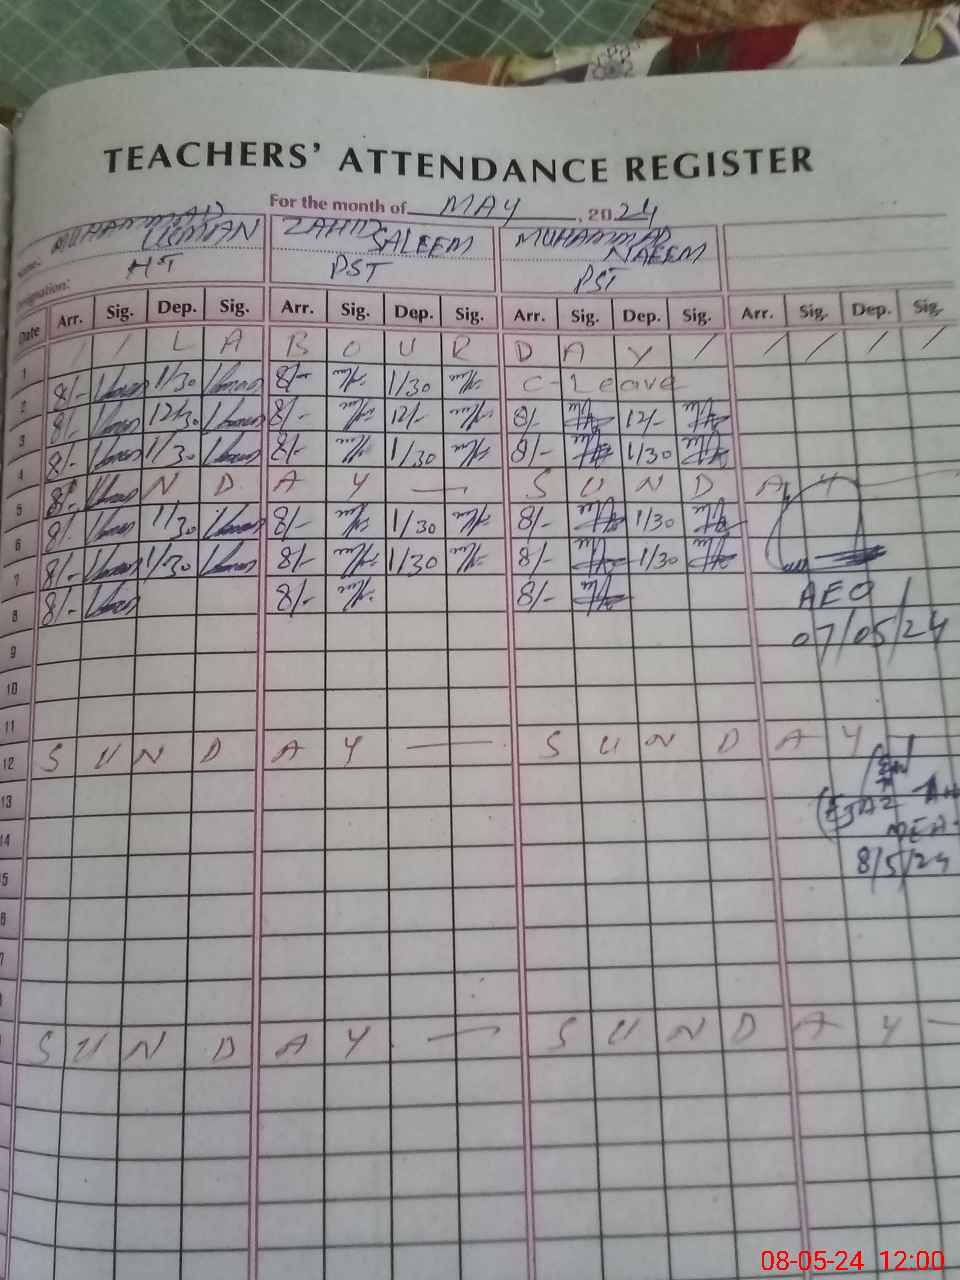 TEACHERS' ATTENDANCE REGISTER
For the month of MAY, 2024
MUHAMMAD USMAN ZAHID SALEEM MUHAMMAD NAEEM
HT PST PST
Date Arr. Sig. Dep. Sig. Arr. Sig. Dep. Sig. Arr. Sig. Dep. Sig. Arr. Sig. Dep. Sig.
1 / / L A B O U R D A Y / / / / /
2 8/- 1/30 8/- 1/30 C-Leave
3 8/- 12/30 8/- 12/- 8/- 12/-
4 8/- 1/30 8/- 1/30 8/- 1/30
5 N D A Y — S U N D A Y —
6 8/- 1/30 8/- 1/30 8/- 1/30
7 8/- 1/30 8/- 1/30 8/- 1/30
8 8/- 8/- 8/- AEO
9 07/05/24
10
11
12 S U N D A Y — S U N D A Y
13
14
8/5/24
S U N D A Y — S U N D A Y —
08-05-24 12:00